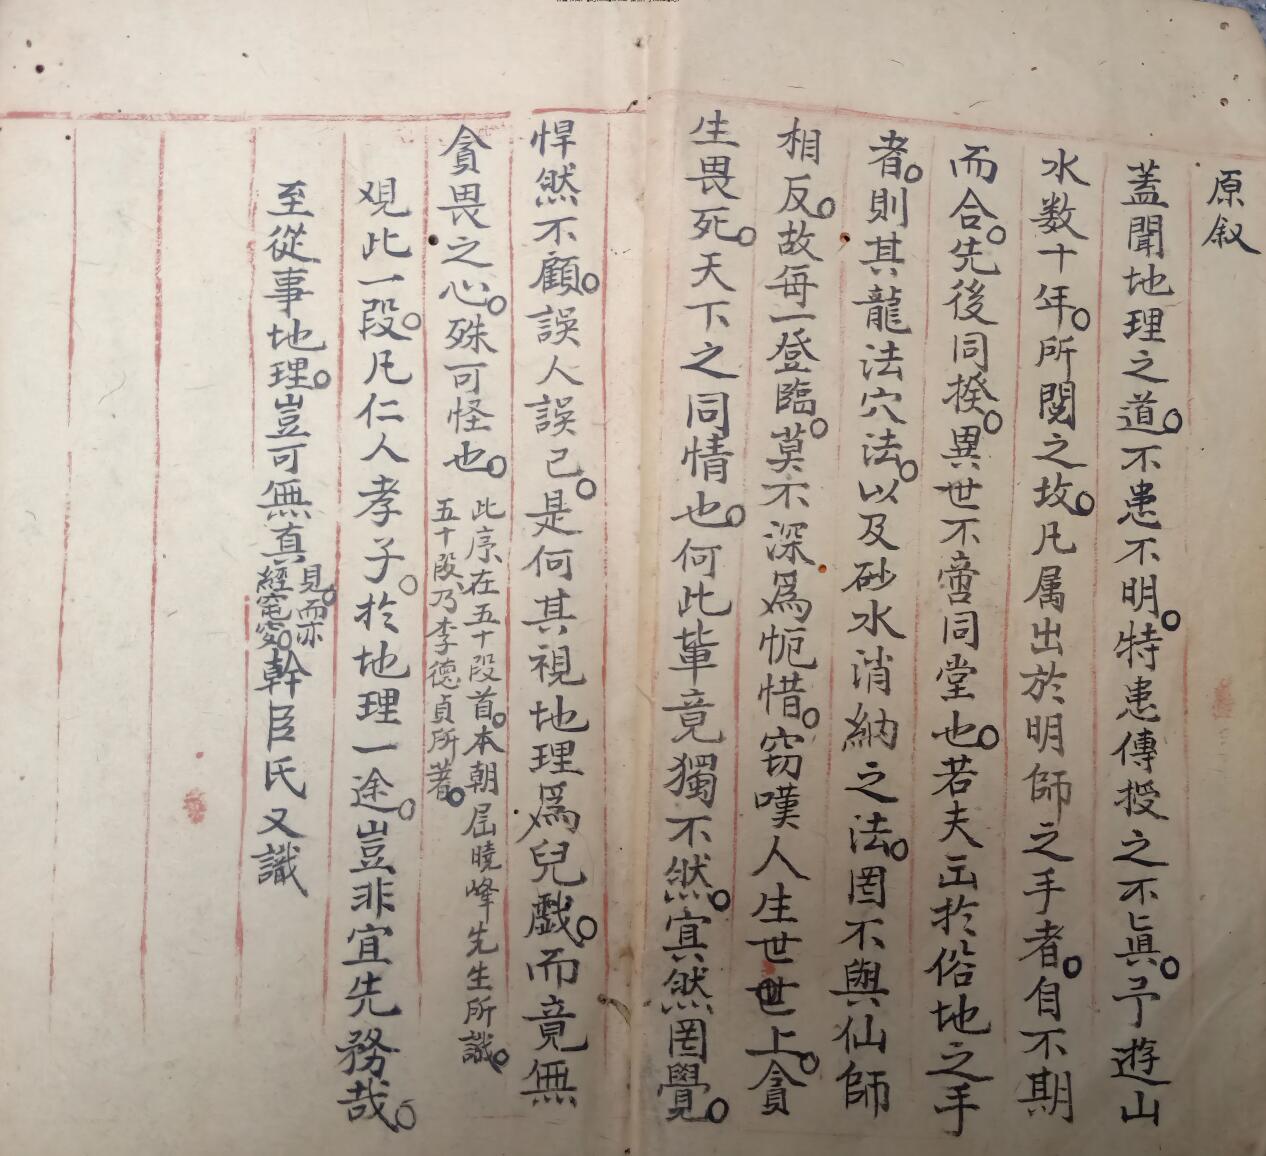 原叙
蓋聞地理之道。不患不明。特患傳授之不眞。予遊山
水数十年。所閱之坟。凡属出於明師之手者。自不期
而合。先後同揆。異世不啻同堂也。若夫出於俗地之手
者。則其龍法穴法。以及砂水消納之法。罔不與仙師
相反。故每一登臨。莫不深爲惋惜。窃嘆人生世上。貪
生畏死。天下之同情也。何此輩竟獨不然。寘然罔覺。
悍然不顧。誤人誤己。是何其視地理爲兒戲。而竟無
貪畏之心。殊可怪也。
此序在五十段首。本朝屈曉峰先生所識。
五十段、乃李德貞所著。
观此一段。凡仁人孝子。於地理一途。豈非宜先務哉。
至從事地理。豈可無真見。而不經窀穸。幹臣氏又識